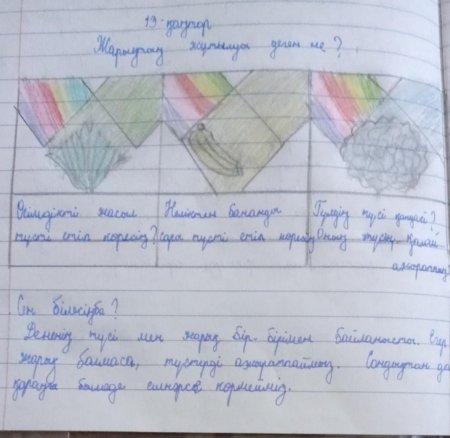 19 қаңтар
Жарықтың жұтылуы деген не?
Өсімдікті жасыл
түсті етіп көресіз?
Неліктен бананды
сары түсті етіп көресіз
Гүлдің түсі қандай?
Оның түсін қалай
ажыраттың
Сен білесіңбе?
Дененің түсі мен жарық бір-бірімен байланысты. Егер
жарық болмаса, түстерді ажыратпаймыз. Сондықтан да
қараңғы бөлмеде ештеңе көрмейміз.